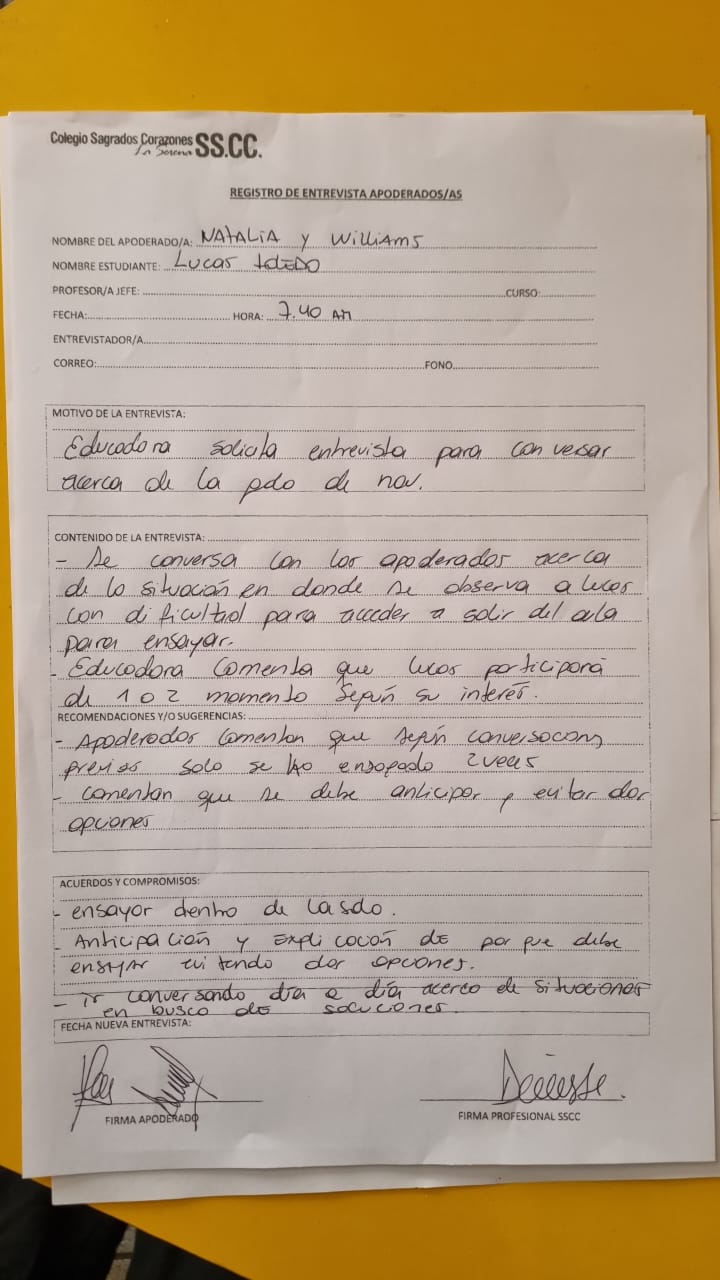 Colegio Sagrados Corazones SS.CC.
La Serena
REGISTRO DE ENTREVISTA APODERADOS/AS
NOMBRE DEL APODERADO/A: NATALIA y WILLIAMS
NOMBRE ESTUDIANTE: Lucas TOLEDO
PROFESOR/A JEFE: CURSO:
FECHA: HORA: 7.40 AM
ENTREVISTADOR/A
CORREO: FONO
MOTIVO DE LA ENTREVISTA:
Educadora solicita entrevista para conversar
acerca de la pdo de nav.
CONTENIDO DE LA ENTREVISTA:
- Se conversa con los apoderados acerca
de la situación en donde se observa a lucas
con dificultad para acceder a salir del aula
para ensayar.
- Educadora comenta que lucas participará
de 1 o 2 momento según su interés.
RECOMENDACIONES Y/O SUGERENCIAS:
- Apoderados comentan que según
previas solo se ha ensayado 2 veces
- comentan que se debe anticipar y evitar dar
opciones
ACUERDOS Y COMPROMISOS:
- ensayar dentro de la
- Anticipación y explicación de por que debe
ensayar evitando dar opciones.
- ir conversando día a día acerca de situaciones
en busca de soluciones.
FECHA NUEVA ENTREVISTA:
FIRMA APODERADO
FIRMA PROFESIONAL SSCC